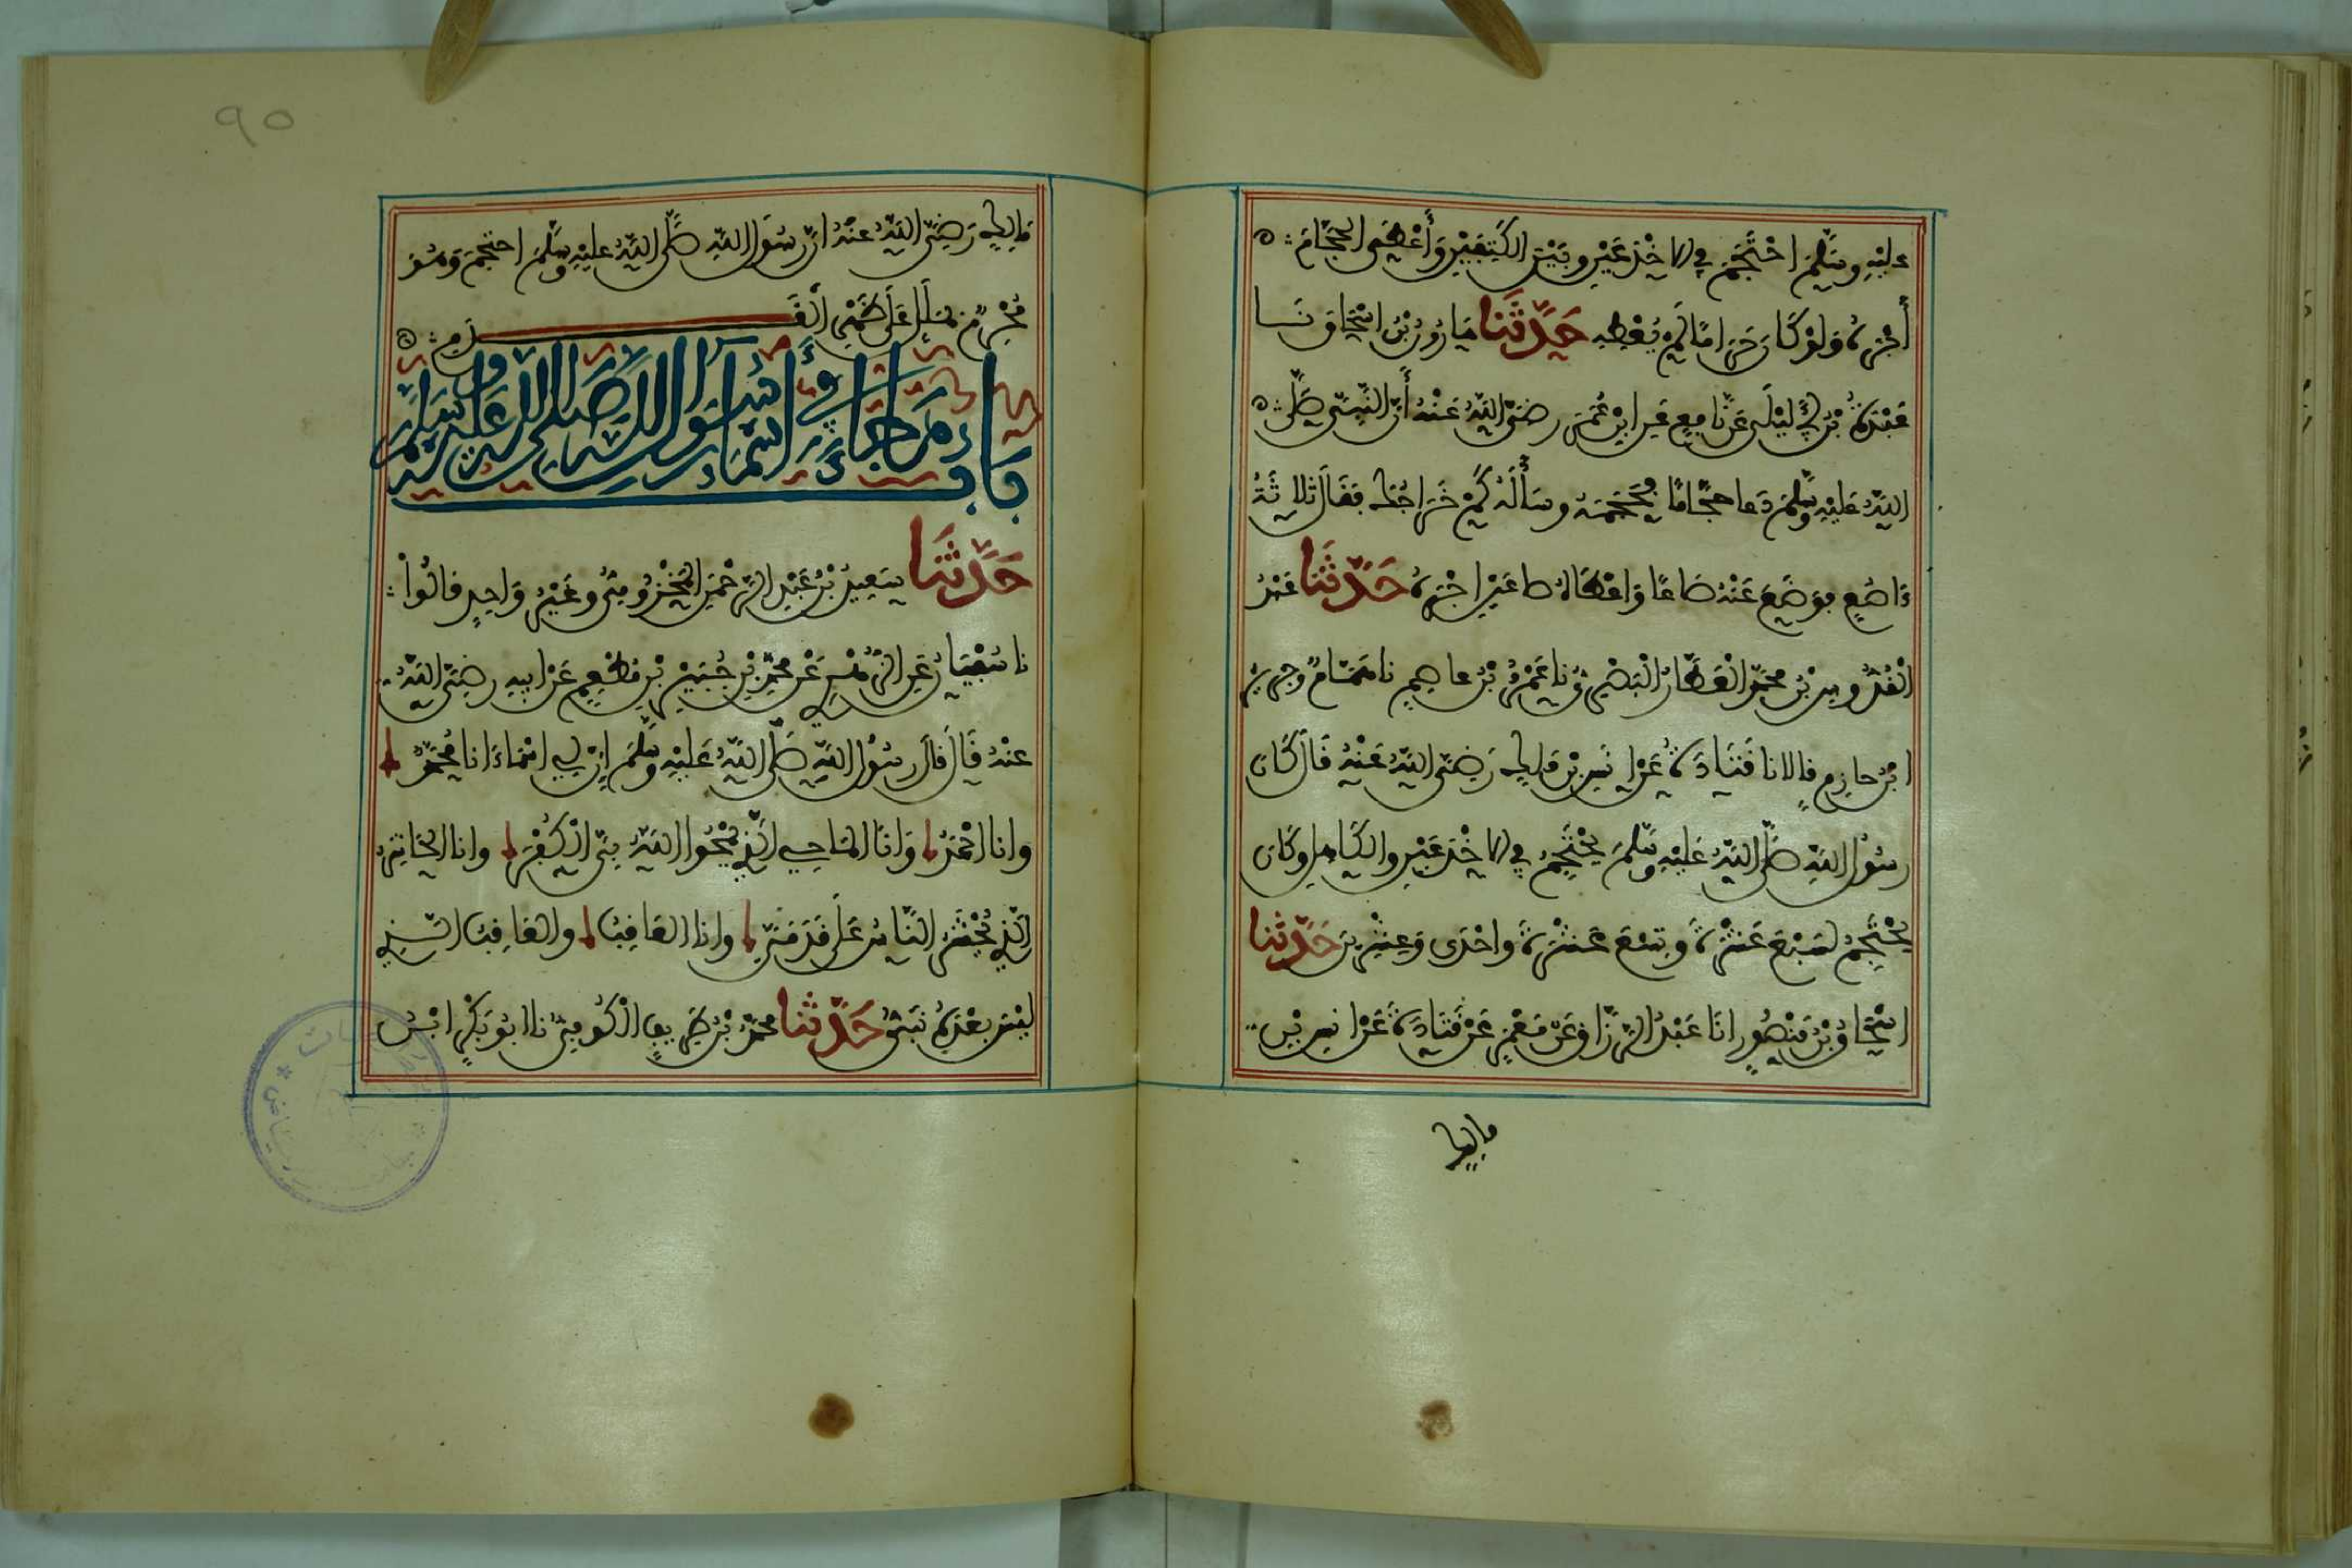 عليه وسلم احتجم في الاخدعين وبين الكتفين وأعطى الحجام
أجره ولو كان حراما لم يعطه حدثنا هارون بن اسحاق نا
عبدة عن ابن أبي ليلى عن نافع عن ابن عمر رضي الله عنه أن النبي صلى
الله عليه وسلم دعا حجاما فحجمه وسأله كم خراجك فقال ثلاثة
ءاصع فوضع عنه صاعا واعطاه اجره حدثنا عبد
القدوس بن محمد العطار البصري نا عمرو بن عاصم نا همام وجرير
ابن حازم قالا نا قتادة عن انس بن مالك رضي الله عنه قال كان
رسول الله صلى الله عليه وسلم يحتجم في الاخدعين والكاهل وكان
يحتجم لسبع عشرة وتسع عشرة واحدى وعشرين حدثنا
اسحاق بن منصور انا عبد الرزاق عن معمر عن قتادة عن انس بن
مالك
٩٥
مالك رضي الله عنه ان رسول الله صلى الله عليه وسلم احتجم وهو
محرم بملل على ظهر القدم
باب ما جاء في أسماء رسول الله صلى الله عليه وسلم
حدثنا سعيد بن عبد الرحمن المخزومي وغير واحد قالوا
نا سفيان عن الزهري عن محمد بن جبير بن مطعم عن ابيه رضي الله
عنه قال قال رسول الله صلى الله عليه وسلم ان لي اسماء انا محمد
وانا احمد وانا الماحي الذي يمحوا الله بي الكفر وانا الحاشر
الذي يحشر الناس على قدمي وانا العاقب والعاقب الذي
ليس بعده نبي حدثنا محمد بن طريف الكوفي نا ابو بكر ابن